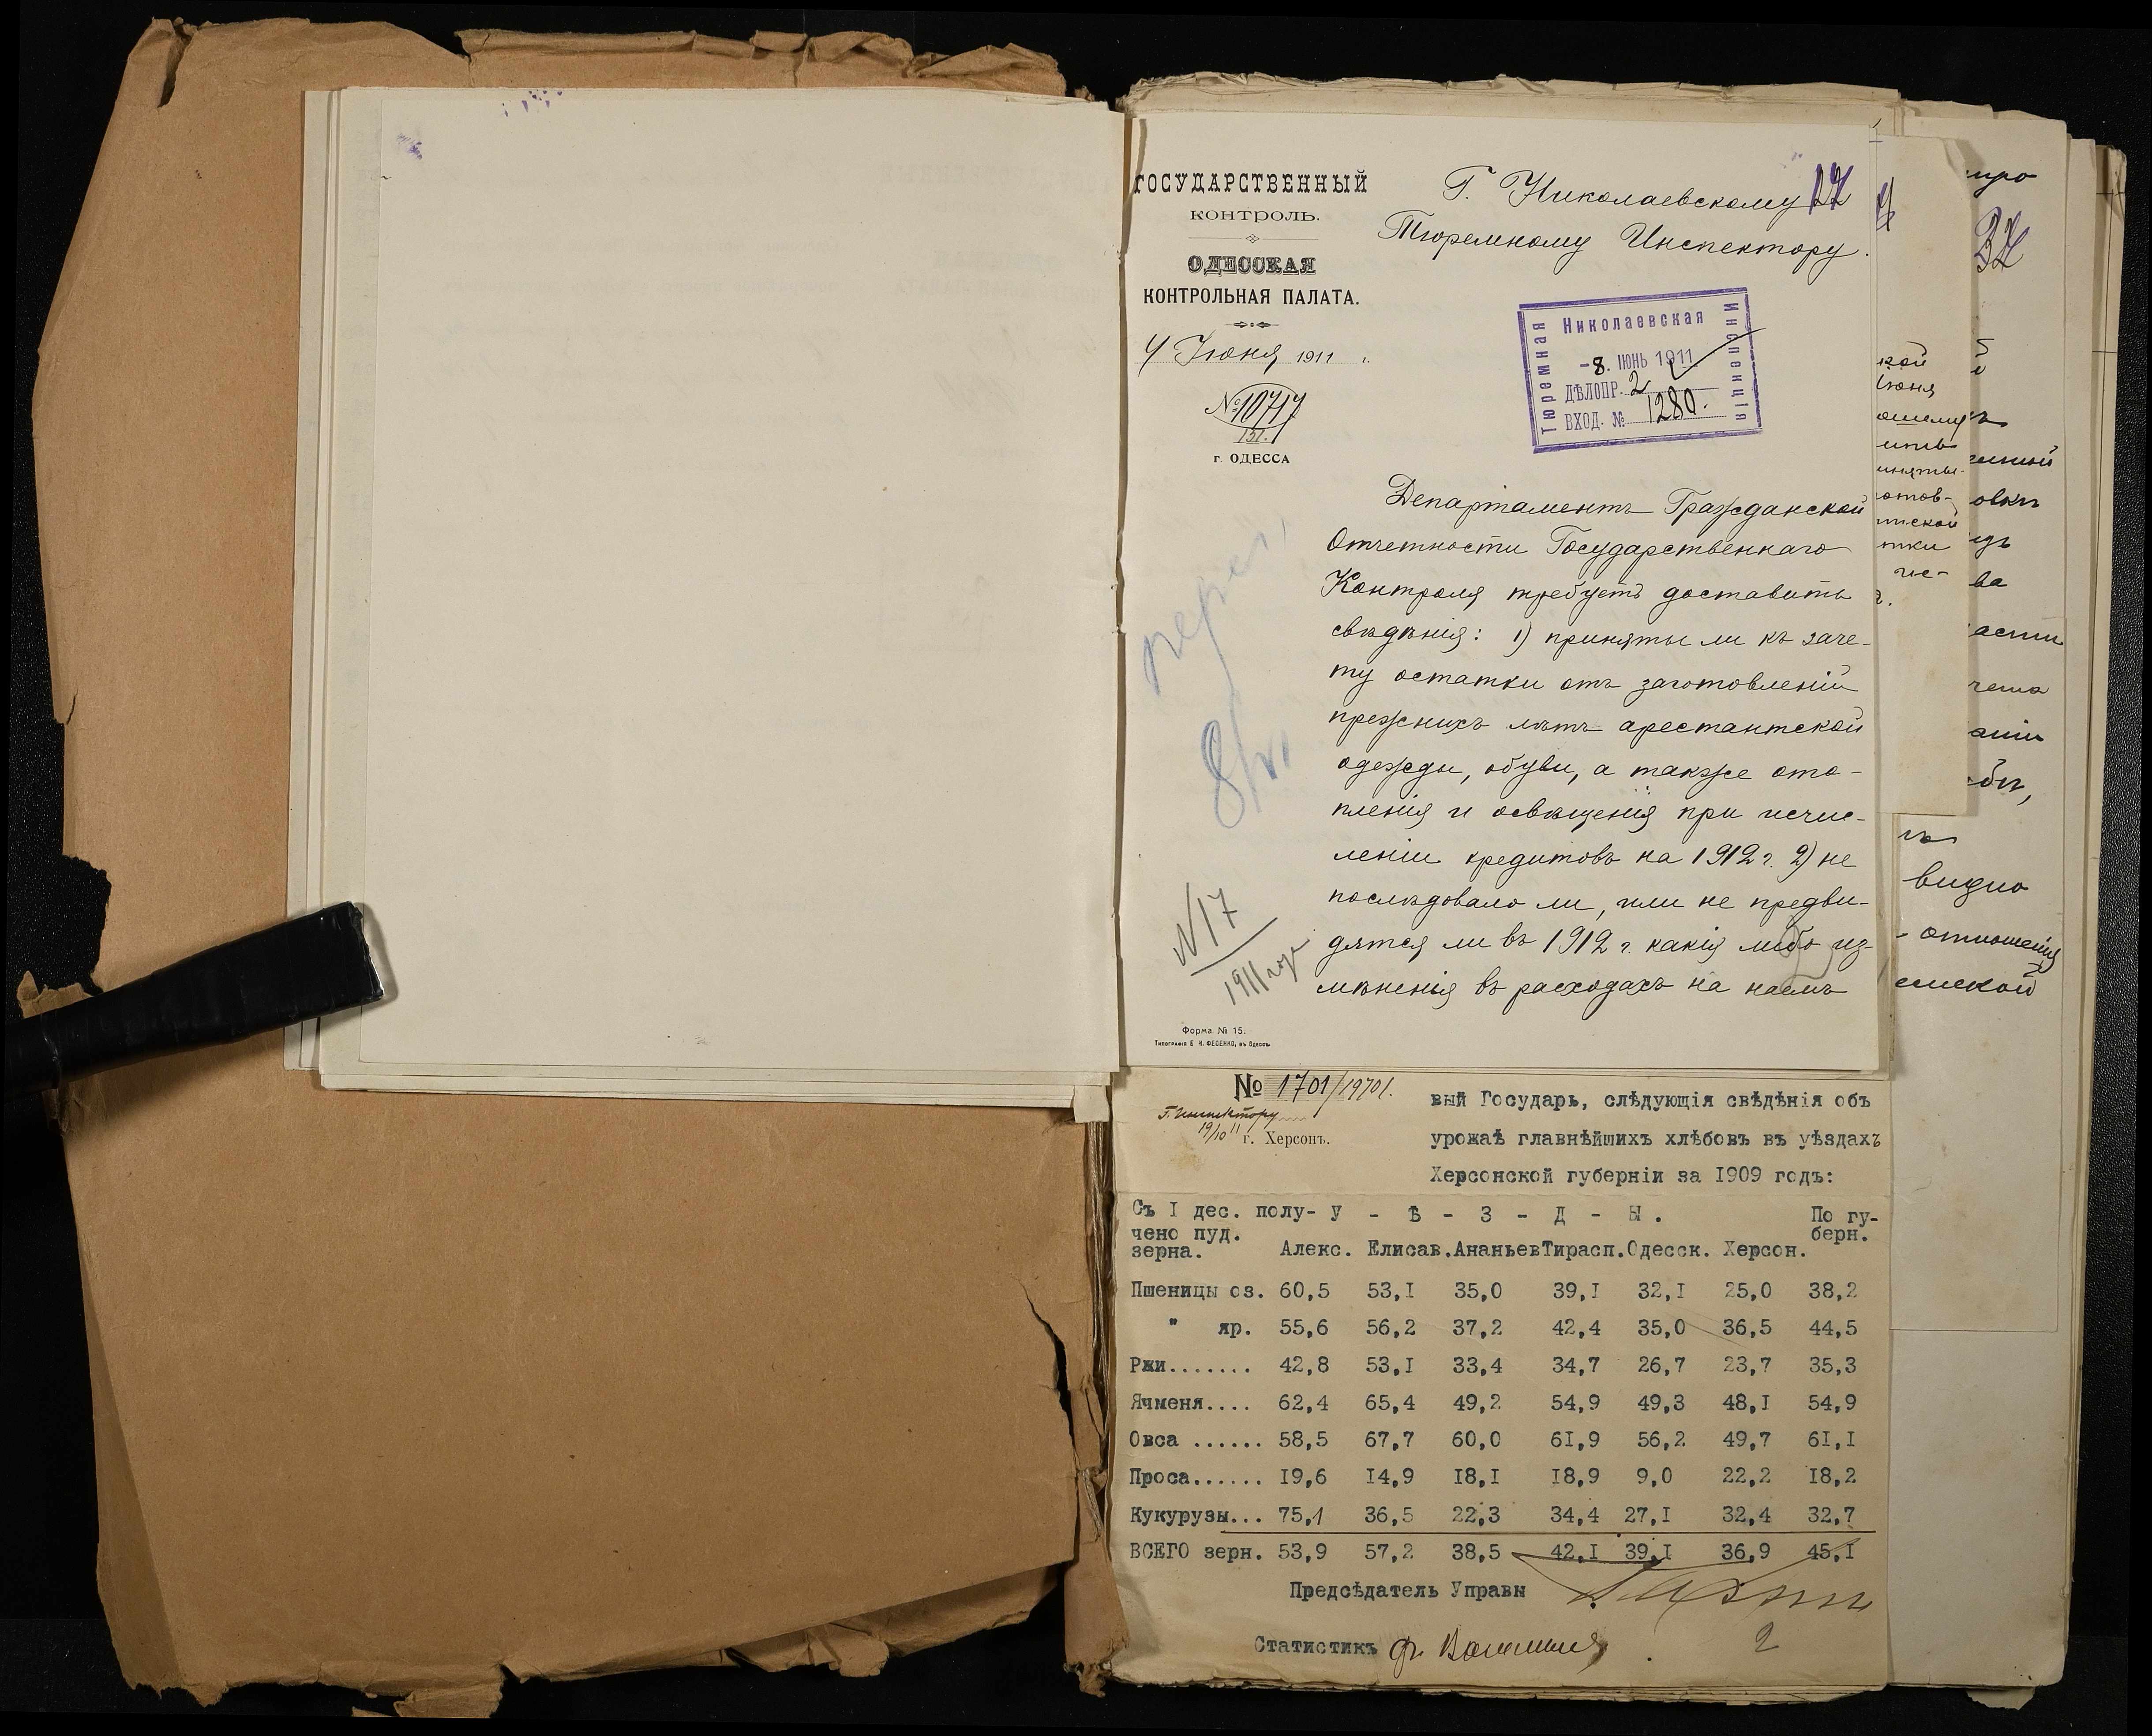 ГОСУДАРСТВЕННЫЙ
КОНТРОЛЬ.
ОДЕССКАЯ
КОНТРОЛЬНАЯ ПАЛАТА.
4 Іюня 1911 г.
№ 10717
г. ОДЕССА
Г. Николаевскому
Тюремному Инспектору.
Николаевская
Тюремная
Инспекція
-8. ІЮНЬ 1911
ДѢЛОПР. 2
ВХОД. № 1280.
Департаментъ Гражданской
Отчетности Государственнаго
Контроля требуетъ доставить
свѣдѣнія: 1) приняты ли къ заче-
ту остатки отъ заготовленій
прежнихъ лѣтъ арестантской
одежды, обуви, а также ото-
пленія и освѣщенія при исчис-
леніи кредитовъ на 1912 г. 2) не
послѣдовало ли, или не предви-
дятся ли въ 1912 г. какія либо из-
мѣненія въ расходахъ на наемъ
№ 17
1911 года
Форма № 15.
Типографія Е. И. ФЕСЕНКО, въ Одессѣ.
кой
Іюня
отов-
тской
видно
отношенія
емской
№ 1701/19701.
Г. Инспектору
19/10 11
г. Херсонъ.
вый Государь, слѣдующія свѣдѣнія объ
урожаѣ главнѣйшихъ хлѣбовъ въ уѣздахъ
Херсонской губерніи за I909 годъ:
Съ I дес. полу- У - Ѣ - З - Д - Ы . По гу-
чено пуд. берн.
зерна. Алекс. Елисав.АнаньевТирасп.Одесск. Херсон.
Пшеницы оз. 60,5 53,I 35,0 39,I 32,I 25,0 38,2
" яр. 55,6 56,2 37,2 42,4 35,0 36,5 44,5
Ржи....... 42,8 53,I 33,4 34,7 26,7 23,7 35,3
Ячменя.... 62,4 65,4 49,2 54,9 49,3 48,I 54,9
Овса ...... 58,5 67,7 60,0 6I,9 56,2 49,7 6I,I
Проса...... I9,6 I4,9 I8,I I8,9 9,0 22,2 I8,2
Кукурузы... 75,1 36,5 22,3 34,4 27,I 32,4 32,7
ВСЕГО зерн. 53,9 57,2 38,5 42,I 39,I 36,9 45,I
Предсѣдатель Управы
Статистикъ
2